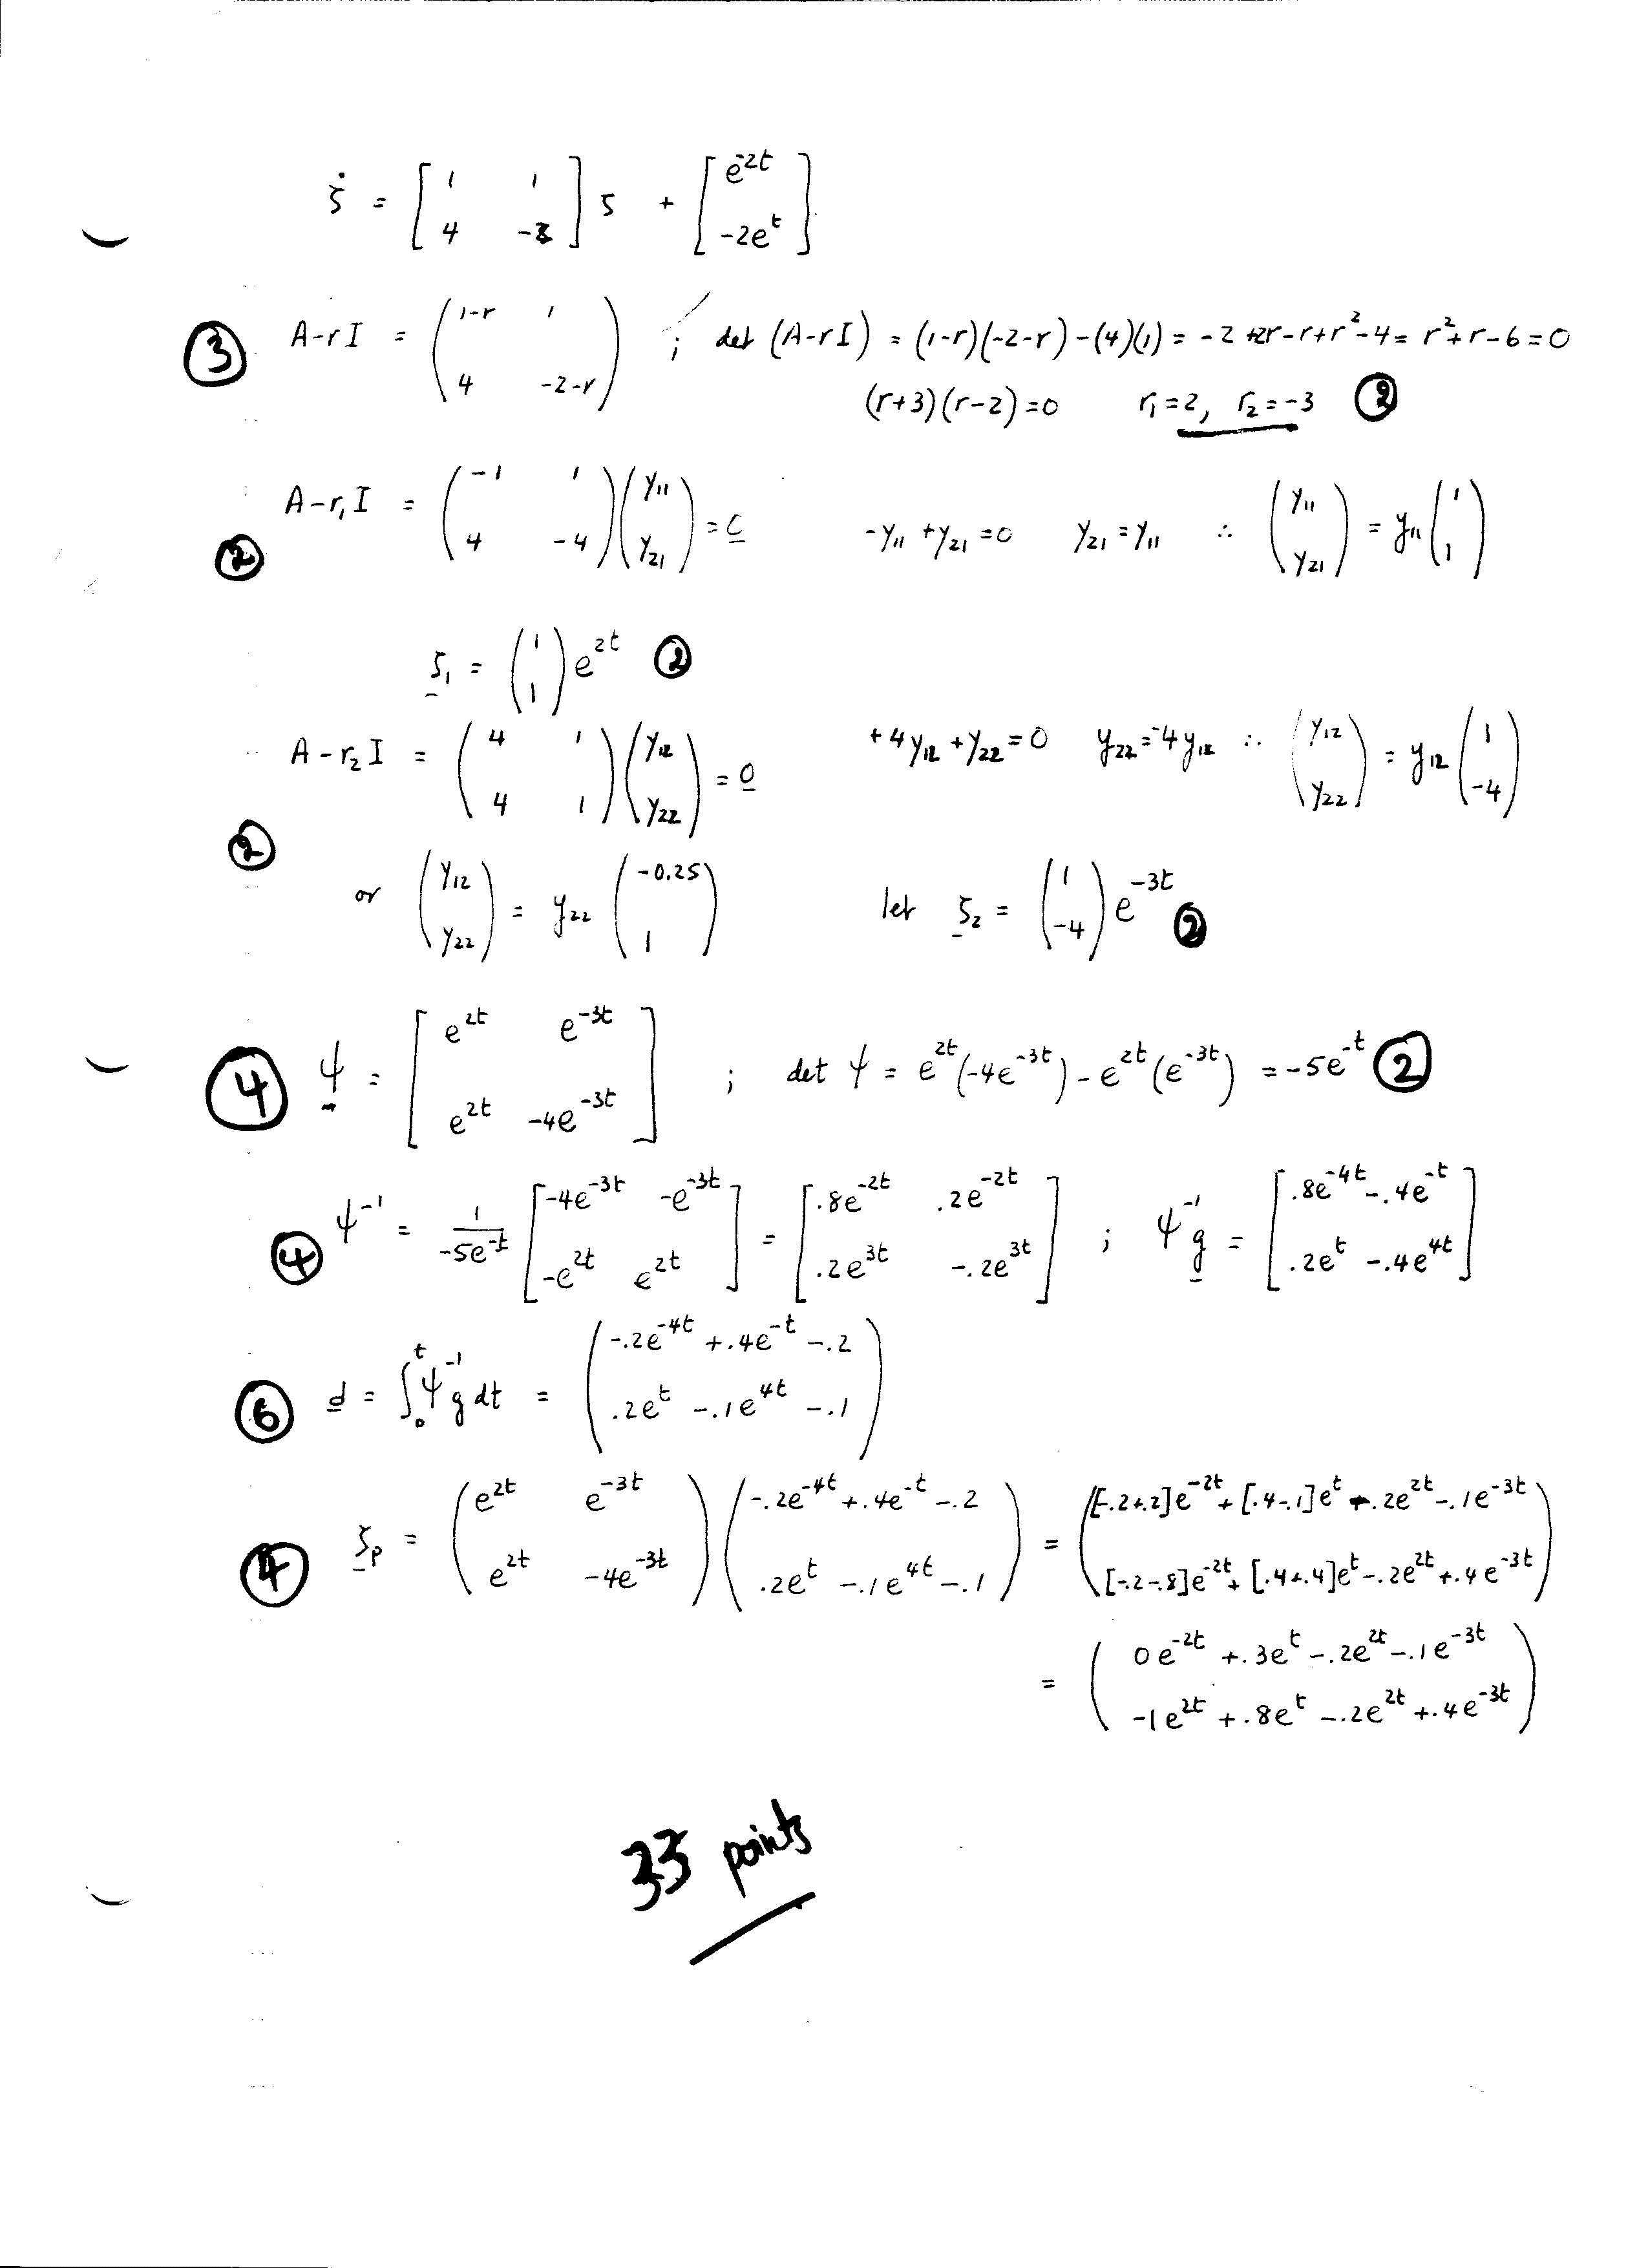 ζ̇ = [ 1 1 ; 4 -2 ] ζ + [ e^{-2t} ; -2e^t ]
③ A-rI = ( 1-r 1 ; 4 -2-r ) ; det (A-rI) = (1-r)(-2-r)-(4)(1) = -2+2r-r+r²-4 = r²+r-6=0
(r+3)(r-2)=0 r₁=2, r₂=-3 ②
② A-r₁I = ( -1 1 ; 4 -4 )( y₁₁ ; y₂₁ ) = 0 -y₁₁+y₂₁=0 y₂₁=y₁₁ ∴ ( y₁₁ ; y₂₁ ) = y₁₁( 1 ; 1 )
ζ₁ = ( 1 ; 1 ) e^{2t} ②
A-r₂I = ( 4 1 ; 4 1 )( y₁₂ ; y₂₂ ) = 0 +4y₁₂+y₂₂=0 y₂₂=-4y₁₂ ∴ ( y₁₂ ; y₂₂ ) = y₁₂( 1 ; -4 )
② or ( y₁₂ ; y₂₂ ) = y₂₂ ( -0.25 ; 1 ) let ζ₂ = ( 1 ; -4 ) e^{-3t} ②
④ ψ = [ e^{2t} e^{-3t} ; e^{2t} -4e^{-3t} ] ; det ψ = e^{2t}(-4e^{-3t})-e^{2t}(e^{-3t}) = -5e^{-t} ②
④ ψ^{-1} = 1/(-5e^{-t}) [ -4e^{-3t} -e^{-3t} ; -e^{2t} e^{2t} ] = [ .8e^{-2t} .2e^{-2t} ; .2e^{3t} -.2e^{3t} ] ; ψ^{-1}g = [ .8e^{-4t}-.4e^{-t} ; .2e^t-.4e^{4t} ]
⑥ d = ∫₀^t ψ^{-1}g dt = ( -.2e^{-4t}+.4e^{-t}-.2 ; .2e^t-.1e^{4t}-.1 )
④ ζ_p = ( e^{2t} e^{-3t} ; e^{2t} -4e^{-3t} )( -.2e^{-4t}+.4e^{-t}-.2 ; .2e^t-.1e^{4t}-.1 ) = ( [-.2+.2]e^{-2t}+[.4-.1]e^t-.2e^{2t}-.1e^{-3t} ; [-.2-.8]e^{-2t}+[.4+.4]e^t-.2e^{2t}+.4e^{-3t} )
= ( 0e^{-2t}+.3e^t-.2e^{2t}-.1e^{-3t} ; -1e^{2t}+.8e^t-.2e^{2t}+.4e^{-3t} )
33 points